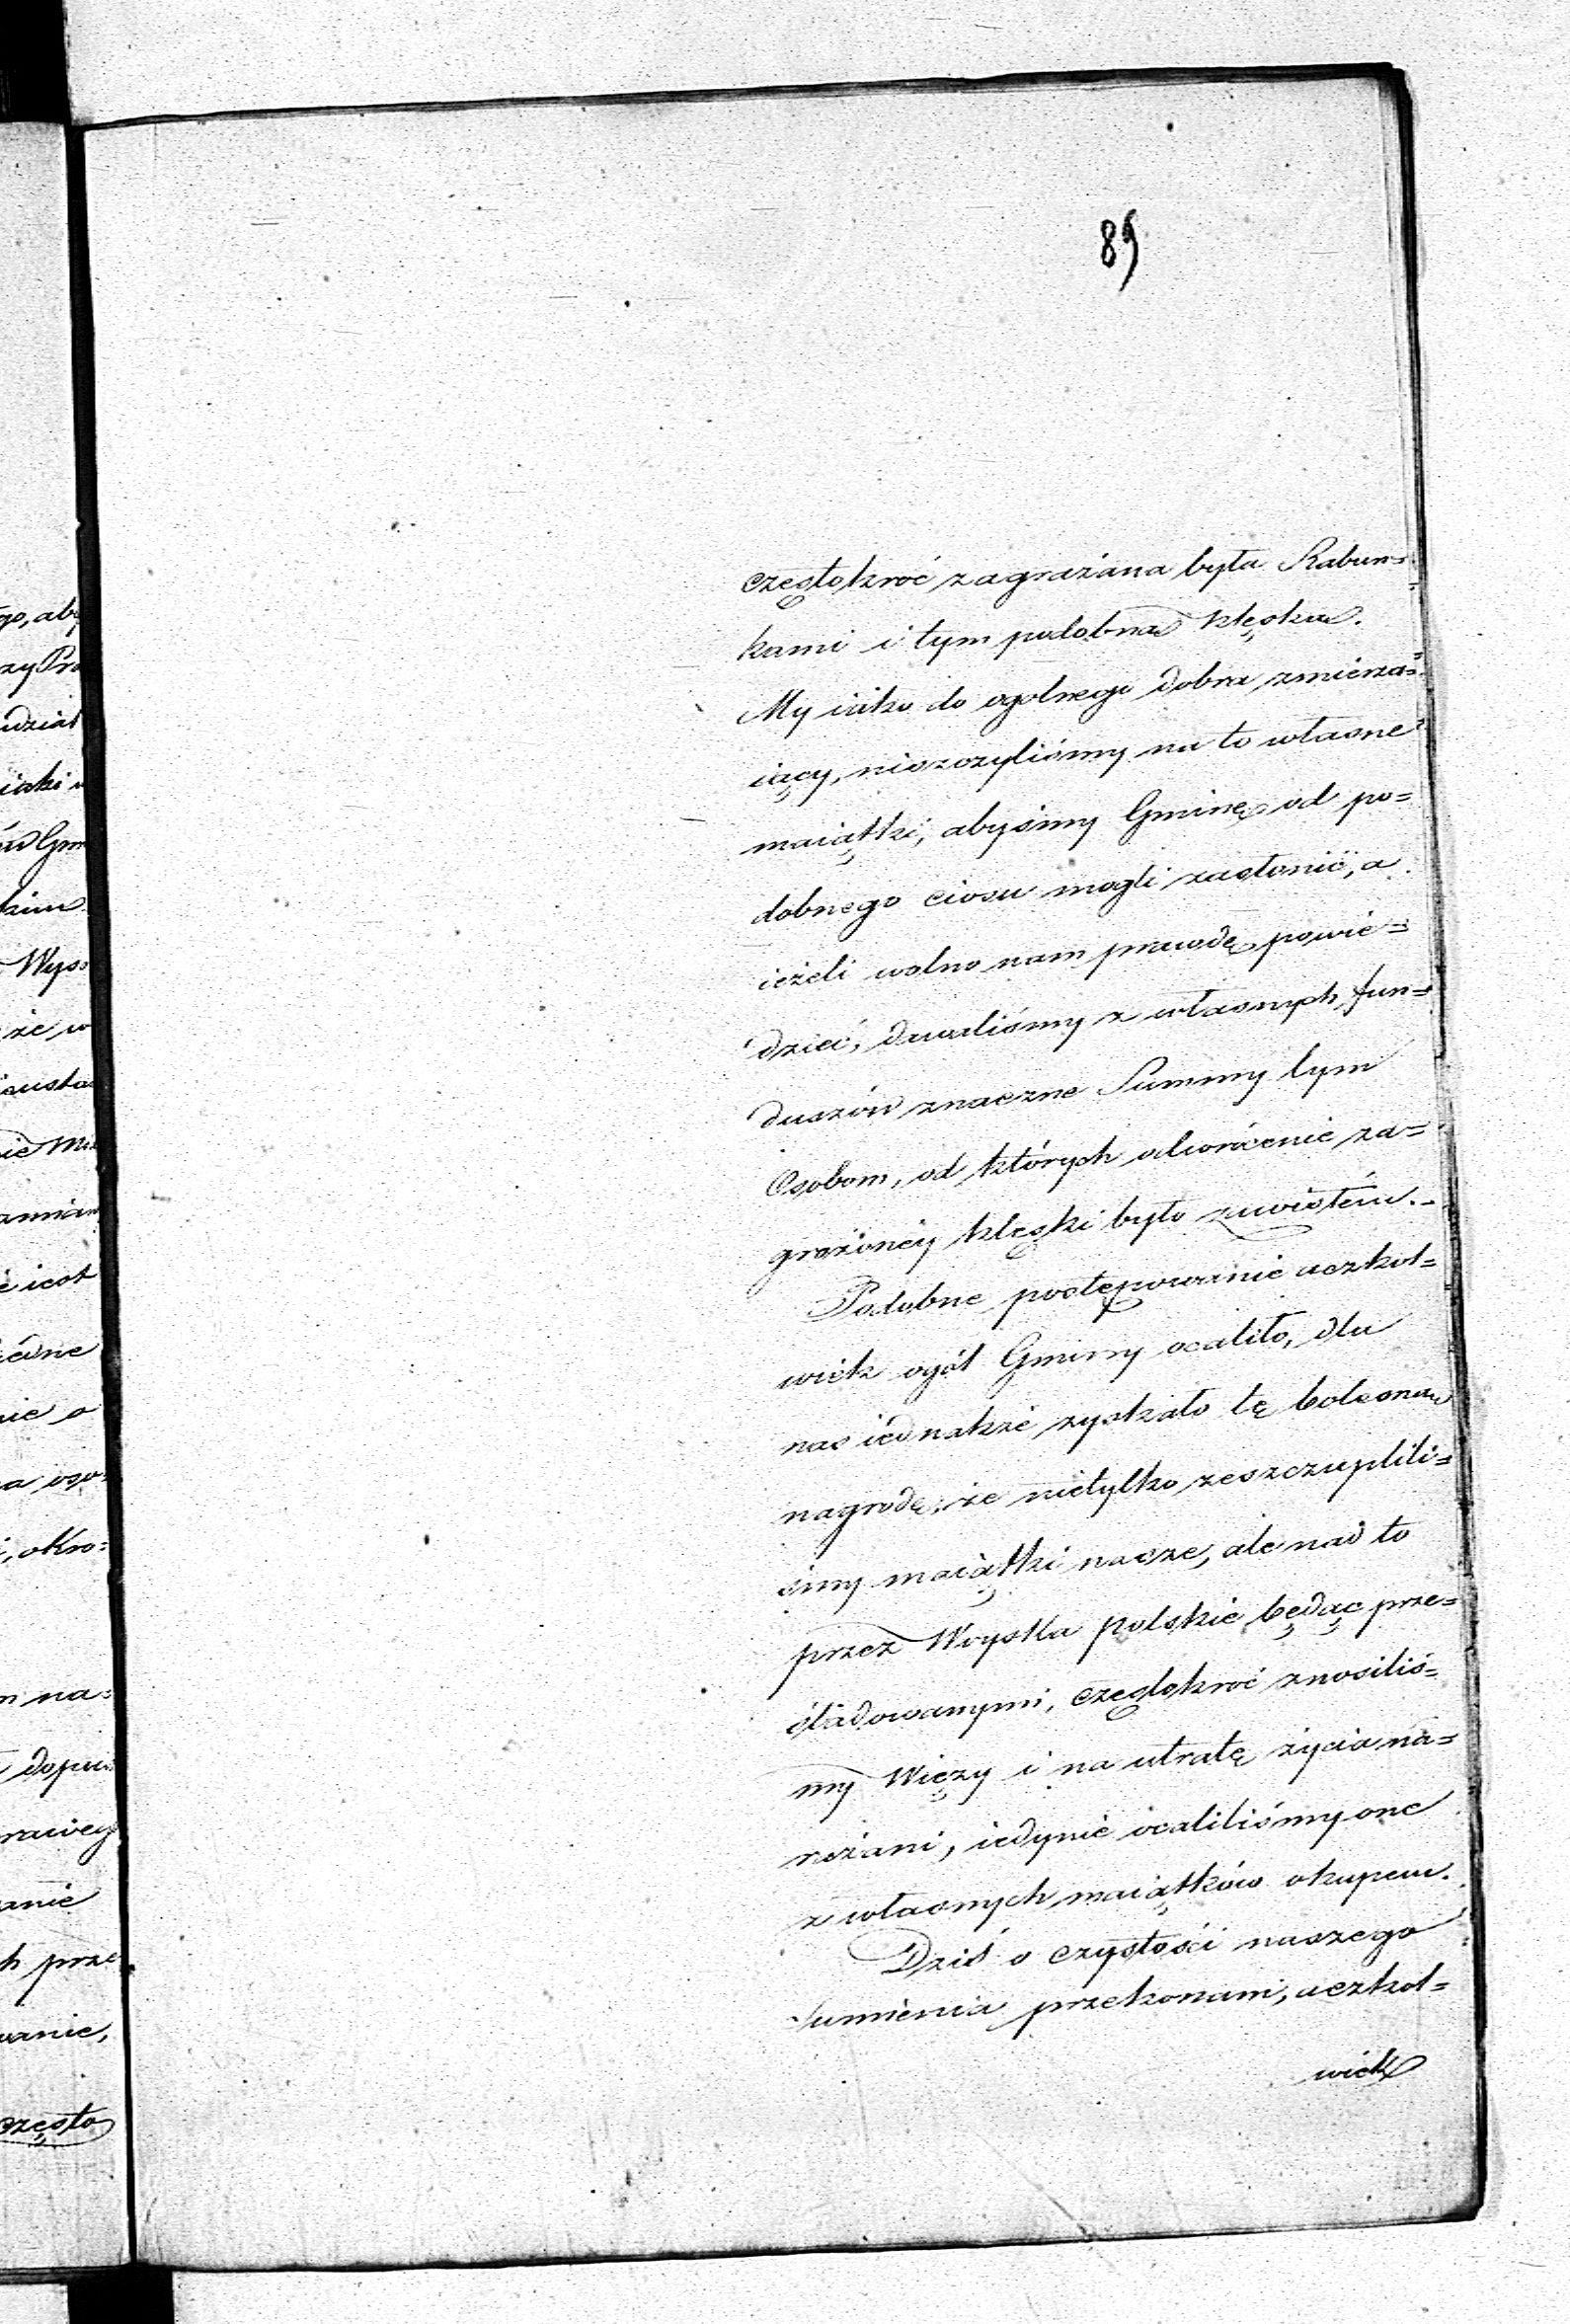 89
częstokroć zagrażana była Rabun=
kami i tym podobną klęską.
My iako do ogolnego dobra zmierza=
iący, niszczyliśmy na to własne
maiątki, abyśmy Gminę od po=
dobnego ciosu mogli zasłonić, a
ieżeli wolno nam prawdę powie=
dzieć, dawaliśmy z własnych fun=
duszów znaczne Summy tym
Osobom, od których odwrócenie za=
grażonéy klęski było zawisłém.
Podobne postępowanie aczkol=
wiek ogół Gminy ocaliło, dla
nas iednakże zyskało tę bolesną
nagrodę, że nietylko zeszczuplili=
śmy maiątki nasze, ale nad to
przez Woyska Polskie będąc prze=
śladowanymi, częstokroć znosiliś=
my Więzy i na utratę życia na=
rażani, iedynie ocaliliśmy one
z własnych maiątków okupem.
Dziś o czystości naszego
sumienia przekonani, aczkol=
wiek
go, aby
zy Pra
udział
iaki
Gm
kim
Wyso
że w
ie
iest
iedne
nie o
a oso=
, okro=
m na=
dopu
anie
h prze
wanie,
często